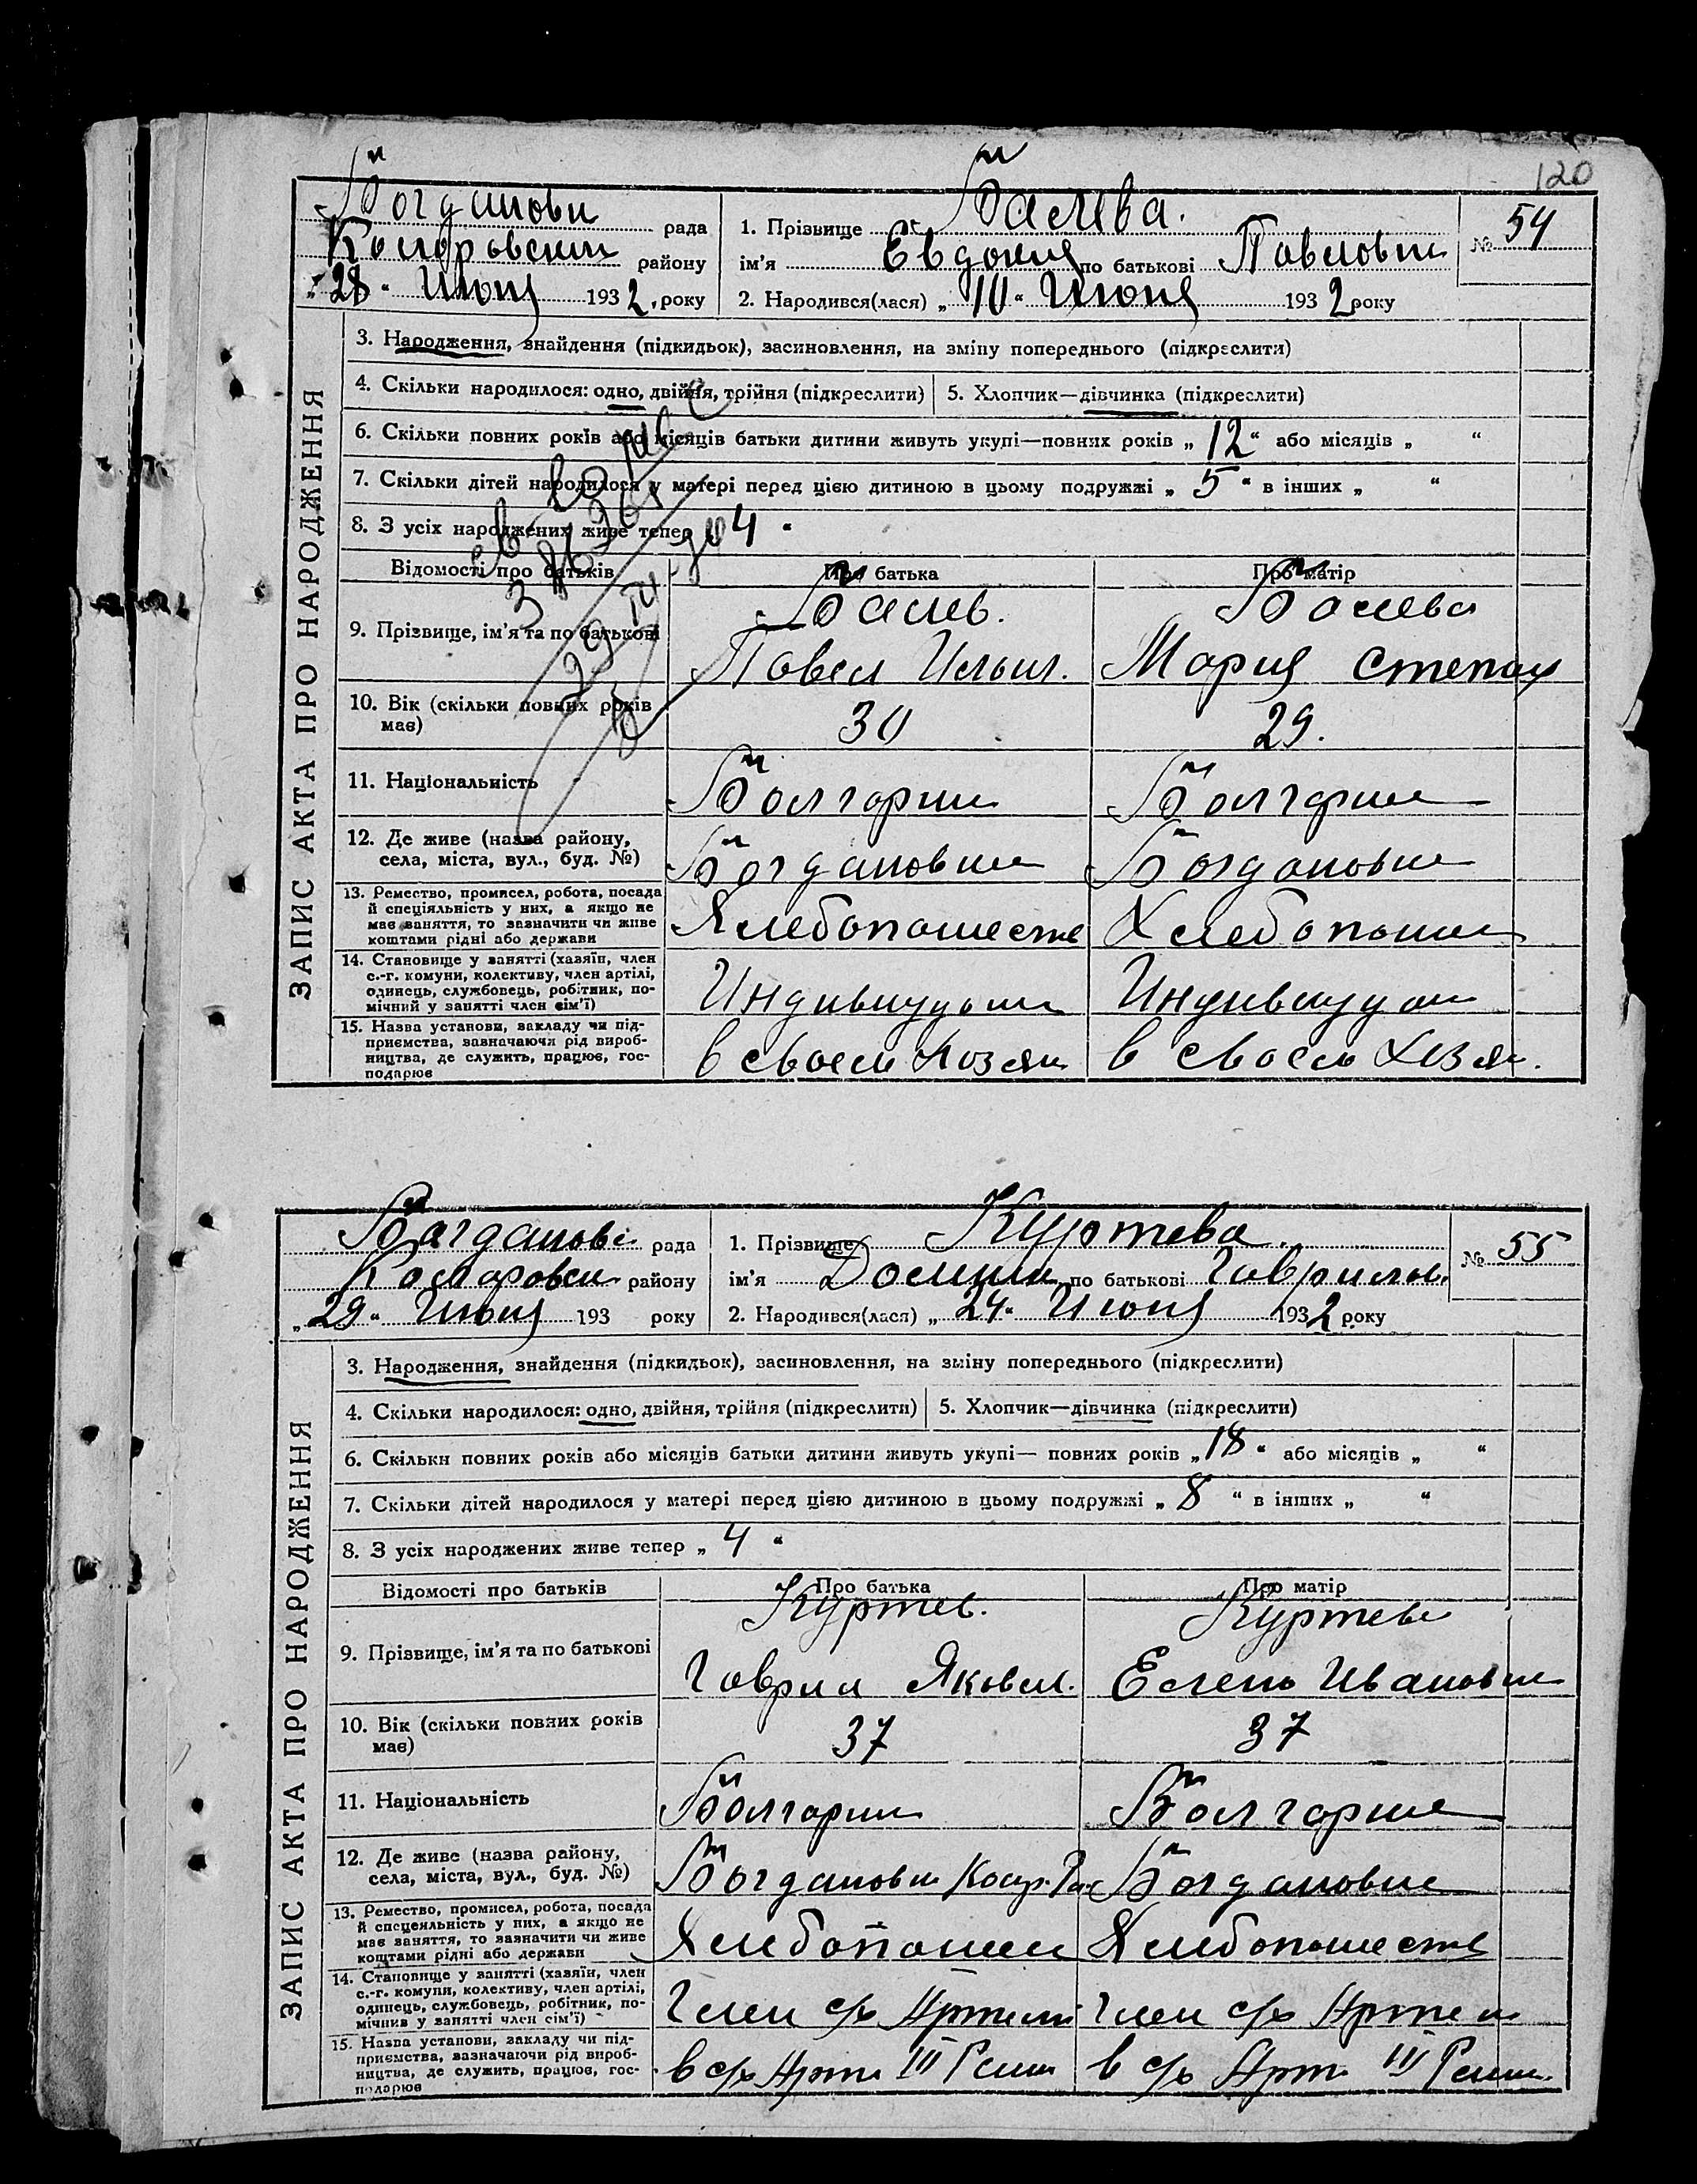 120
Богданови рада
1. Прізвище Балева.
№ 54
району
ім'я Евдокия по батькові Павловн
„28“ Июня 1932 року
2. Народився(лася) „10“ Июня 1932 року
ЗАПИС АКТА ПРО НАРОДЖЕННЯ
3. Народження, знайдення (підкидьок), засиновлення, на зміну попереднього (підкреслити)
4. Скільки народилося: одно, двійня, трійня (підкреслити)
5. Хлопчик—дівчинка (підкреслити)
6. Скільки повних років або місяців батьки дитини живуть укупі—повних років „12“ або місяців „ “
7. Скільки дітей народилося у матері перед цією дитиною в цьому подружжі „5“ в інших „ “
8. З усіх народжених живе тепер 4 “
Відомості про батьків
Про батька
Про матір
9. Прізвище, ім'я та по батькові
Балев.
Балева
Павел Ильич.
Мария Степан
10. Вік (скільки повних років
має)
30
29.
11. Національність
Болгарин
Болгарин
12. Де живе (назва району,
села, міста, вул., буд. №)
Богдановин
Богдановин
13. Ремество, промисел, робота, посада
й спеціяльність у них, а якщо не
має заняття, то зазначити чи живе
коштами рідні або держави
Хлебопашеств
Хлебопаши
14. Становище у занятті (хазяїн, член
с.-г. комуни, колективу, член артілі,
одинець, службовець, робітник, по-
мічний у занятті член сім'ї)
Индивидуал
Индивидуал
15. Назва установи, закладу чи під-
приємства, зазначаючи рід вироб-
ництва, де служить, працює, гос-
подарює
в своем хозяи
в своем хозяи.
Богданови рада
1. Прізвище Куртева.
№ 55
району
ім'я по батькові Гаврилов.
„29“ Июня 193 року
2. Народився(лася) „24“ Июня 1932 року
ЗАПИС АКТА ПРО НАРОДЖЕННЯ
3. Народження, знайдення (підкидьок), засиновлення, на зміну попереднього (підкреслити)
4. Скільки народилося: одно, двійня, трійня (підкреслити)
5. Хлопчик—дівчинка (підкреслити)
6. Скільки повних років або місяців батьки дитини живуть укупі— повних років „18“ або місяців „ “
7. Скільки дітей народилося у матері перед цією дитиною в цьому подружжі „8“ в інших „ “
8. З усіх народжених живе тепер „4“
Відомості про батьків
Про батька
Про матір
9. Прізвище, ім'я та по батькові
Куртев.
Куртева
Гаврил Яковл.
Елена Ивановн
10. Вік (скільки повних років
має)
37
37
11. Національність
Болгарин
Болгарин
12. Де живе (назва району,
села, міста, вул., буд. №)
Богдановин
Богдановин
13. Ремество, промисел, робота, посада
й спецеяльність у них, а якщо не
має заняття, то зазначити чи живе
коштами рідні або держави
Хлебопашеи
Хлебопашеств
14. Становище у занятті (хазяїн, член
с.-г. комуни, колективу, член артілі,
одинець, службовець, робітник, по-
мічнив у занятті член сім'ї)
Член с/х Артели
Член с/х Артели
15. Назва установи, закладу чи під-
приємства, зазначаючи рід вироб-
ництва, де служить, працює, гос-
подарює
в с/х Арти III Реши
в с/х Арт III Реши.